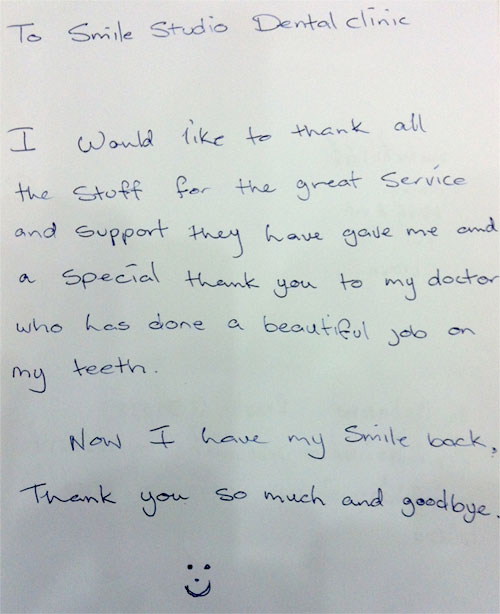 To Smile Studio Dental clinic
I would like to thank all
the stuff for the great service
and support they have gave me and
a special thank you to my doctor
who has done a beautiful job on
my teeth.
Now I have my smile back,
Thank you so much and goodbye.